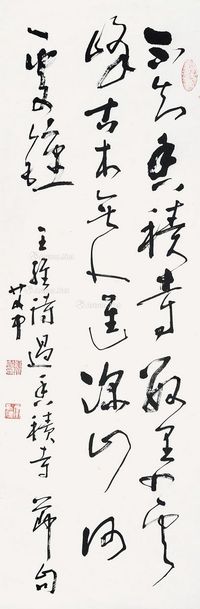 不知香積寺數里入雲
峰古木無人逕深山何
處鐘
王維詩過香積寺節句